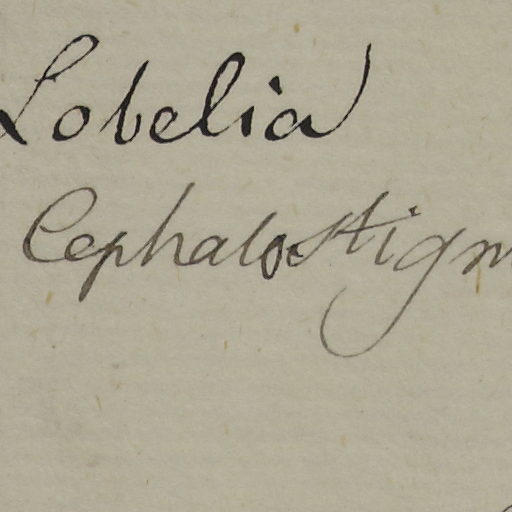 Lobelia
Cephalostigm